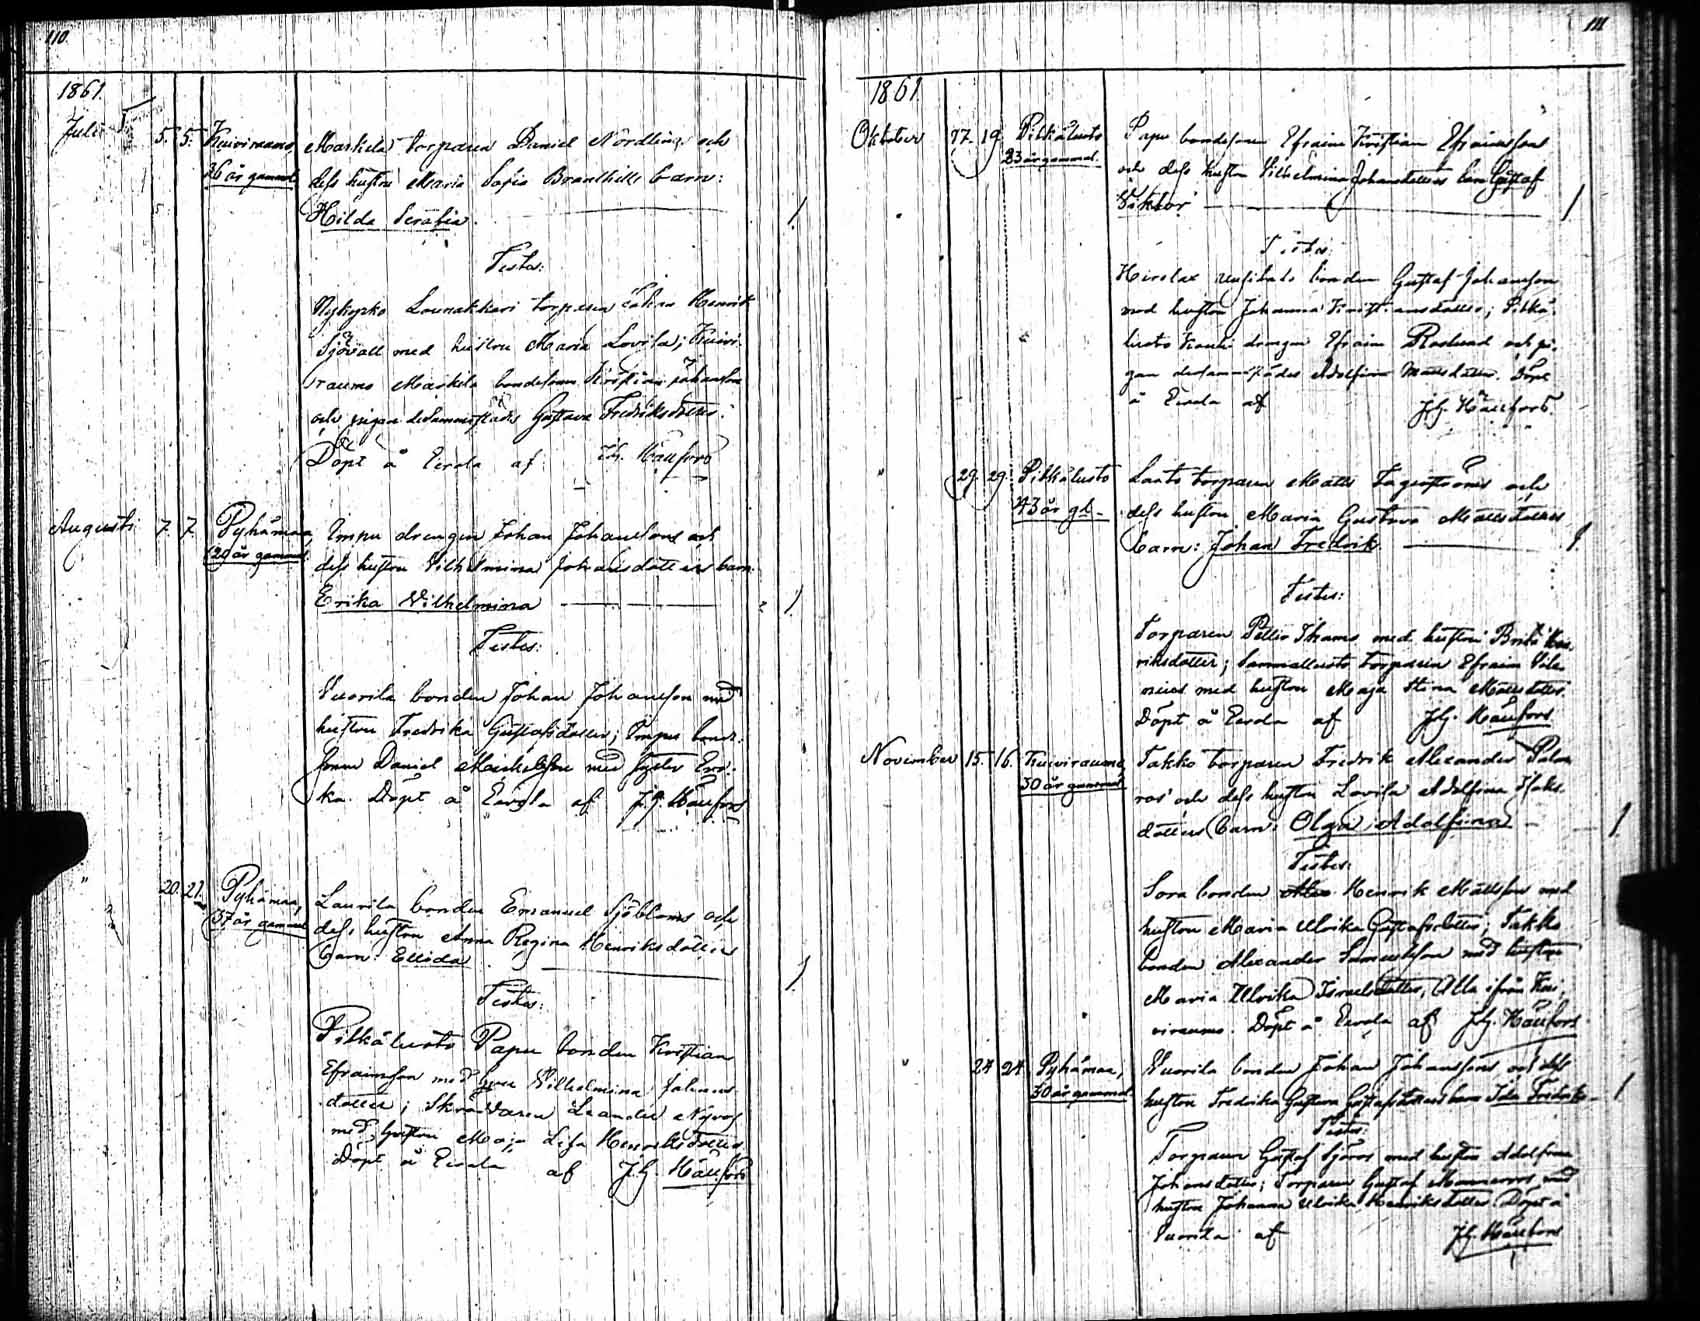 110
1861.
Juli 5. 5. Kuiviraumo, Markula torparen Daniel Nordling och
36 år gammal. dess hustru Maria Sofia Branthills barn:
Hilda Serafia.
Testes:
Nykyrko Lounakkari torparen Johan Henrik
Sjövall med hustru Maria Lovisa; Kuivi-
raumo Markula bondesonen Kristian Johansson
och pigan dersammastädes Gustava Fredriksdotter.
Döpt å Eerola af J.G. Häufors
Augusti 7. 7. Pyhämaa, Impu drengen Johan Johanssons och
29 år gammal. dess hustru Vilhelmina Johansdotters barn
Erika Vilhelmina
Testes:
Vuorila bonden Johan Johansson med
hustru Fredrika Gustafsdotter; Impu bond-
sonen Daniel Michelsson med syster Eri-
ka. Döpt å Eerola af J.G. Häufors
" 20. 21. Pyhämaa, Laurila bonden Emanuel Sjöbloms och
37 år gammal dess hustru Anna Regina Henriksdotters
barn: Ellida
Testes:
Pitkäluoto Papu bonden Kristian
Efraimsson med hustru Vilhelmina Johans-
dotter; Skräddaren Leander
med hustru Maja Lisa Henriksdotter
Döpt å Eerola af J.G. Häufors
111
1861
Oktober 17. 19. Pitkäluoto Papu bondesonen Efraim Kristian Efraimssons
23 år gammal. och dess hustru Vilhelmina Johansdotters barn Gustaf
Viktor
Testes:
bonden Gustaf Johansson
med hustru Johanna Kristiansdotter; Pitkä-
luoto drengen Efraim Roslund och pi-
gan dersammastädes Adolfina Mattsdotter. Döpt
å Eerola af J.G. Häufors.
" 29. 29. Pitkäluoto Laato torparen Matts Fagerströms och
43 år gl. dess hustru Maria Gustava Mattsdotters
barn: Johan Fredrik
Testes:
Torparen Petter med hustru Brita Hen-
riksdotter; Sammalluoto torparen Efraim Vile-
nius med hustru Maja Stina Mattsdotter.
Döpt å Eerola af J.G. Häufors
November 15. 16. Kuiviraumo, Takko torparen Fredrik Alexander Palm-
30 år gammal. ros' och dess hustru Lovisa Adolfina Isaks-
dotters barn: Olga Adolfina
Testes:
Sora bonden Henrik Mattsson med
hustru Maria Ulrika Gustafsdotter; Takko
bonden Alexander Samuelsson med hustru
Maria Ulrika Israelsdotter, Alla ifrån Kui-
viraumo. Döpt å Eerola af J.G. Häufors
" 24 24 Pyhämaa, Vuorila bonden Johan Johanssons och dess
30 år gammal. hustru Fredrika Gustava Gustafsdotters barn Ida Fredrika
Testes:
Torparen Gustaf Sjöros med hustru Adolfina
Johansdotter; Torparen Gustaf Mannerros med
hustru Johanna Ulrika Henriksdotter. Döpt å
Vuorila af J.G. Häufors